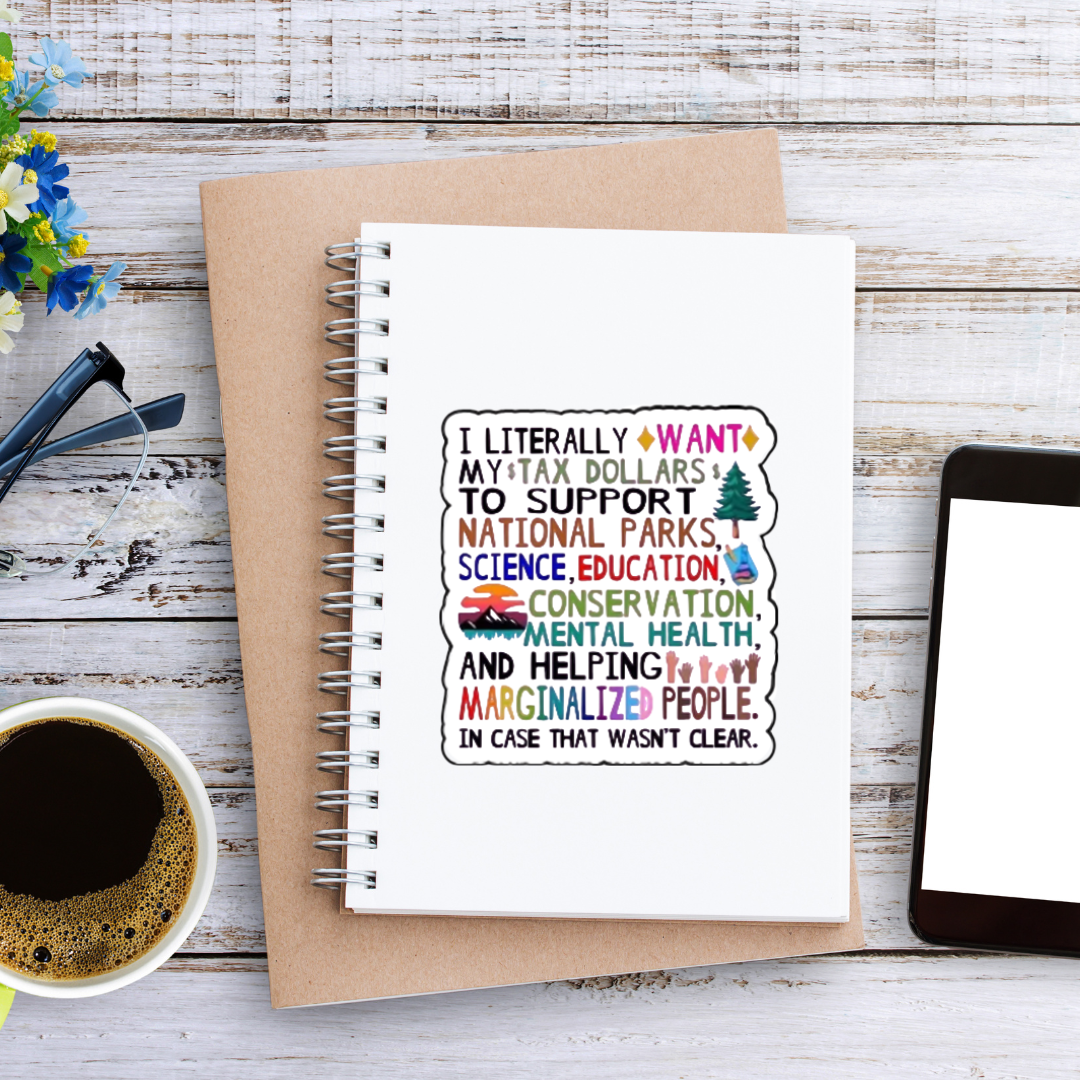 I LITERALLY WANT
MY $TAX DOLLARS$
TO SUPPORT
NATIONAL PARKS,
SCIENCE, EDUCATION,
CONSERVATION,
MENTAL HEALTH,
AND HELPING
MARGINALIZED PEOPLE.
IN CASE THAT WASN'T CLEAR.